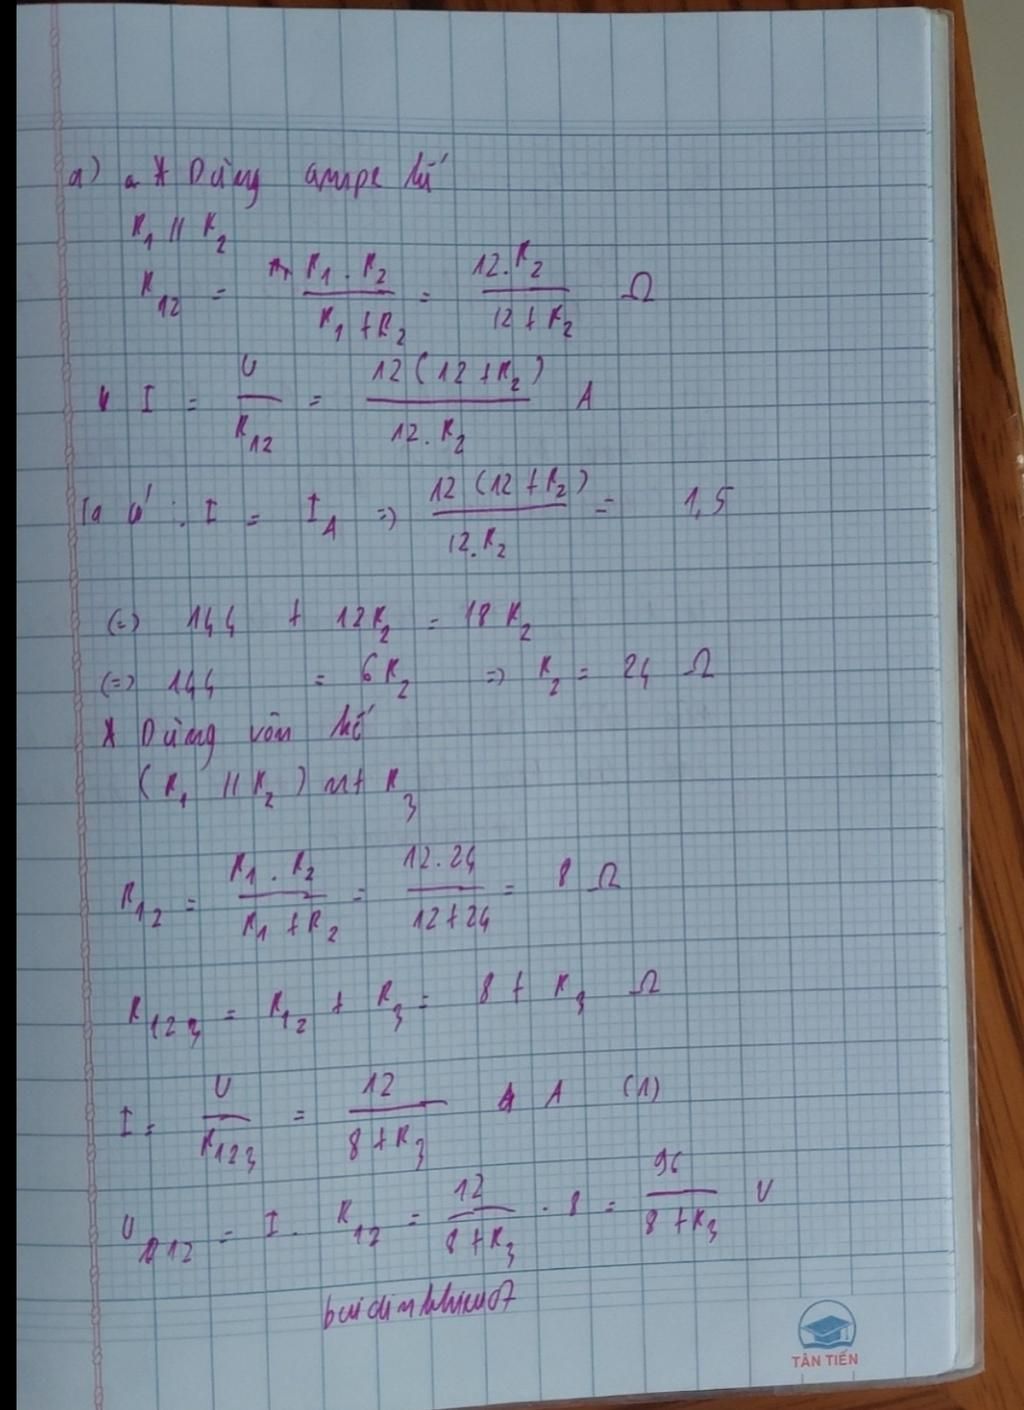 a) * Dùng ampe kế
R₁ // R₂
R₁₂ = (R₁ . R₂)/(R₁ + R₂) = (12.R₂)/(12 + R₂) Ω
I = U/R₁₂ = (12(12 + R₂))/(12.R₂) A
Ta có : I = I_A => (12(12 + R₂))/(12.R₂) = 1,5
(=) 144 + 12R₂ = 18R₂
(=) 144 = 6R₂ => R₂ = 24 Ω
* Dùng vôn kế
(R₁ // R₂) nt R₃
R₁₂ = (R₁ . R₂)/(R₁ + R₂) = (12.24)/(12+24) = 8 Ω
R₁₂₃ = R₁₂ + R₃ = 8 + R₃ Ω
I = U/R₁₂₃ = 12/(8 + R₃) A (1)
U₁₂ = I . R₁₂ = 12/(8 + R₃) . 8 = 96/(8 + R₃) V
TÂN TIẾN